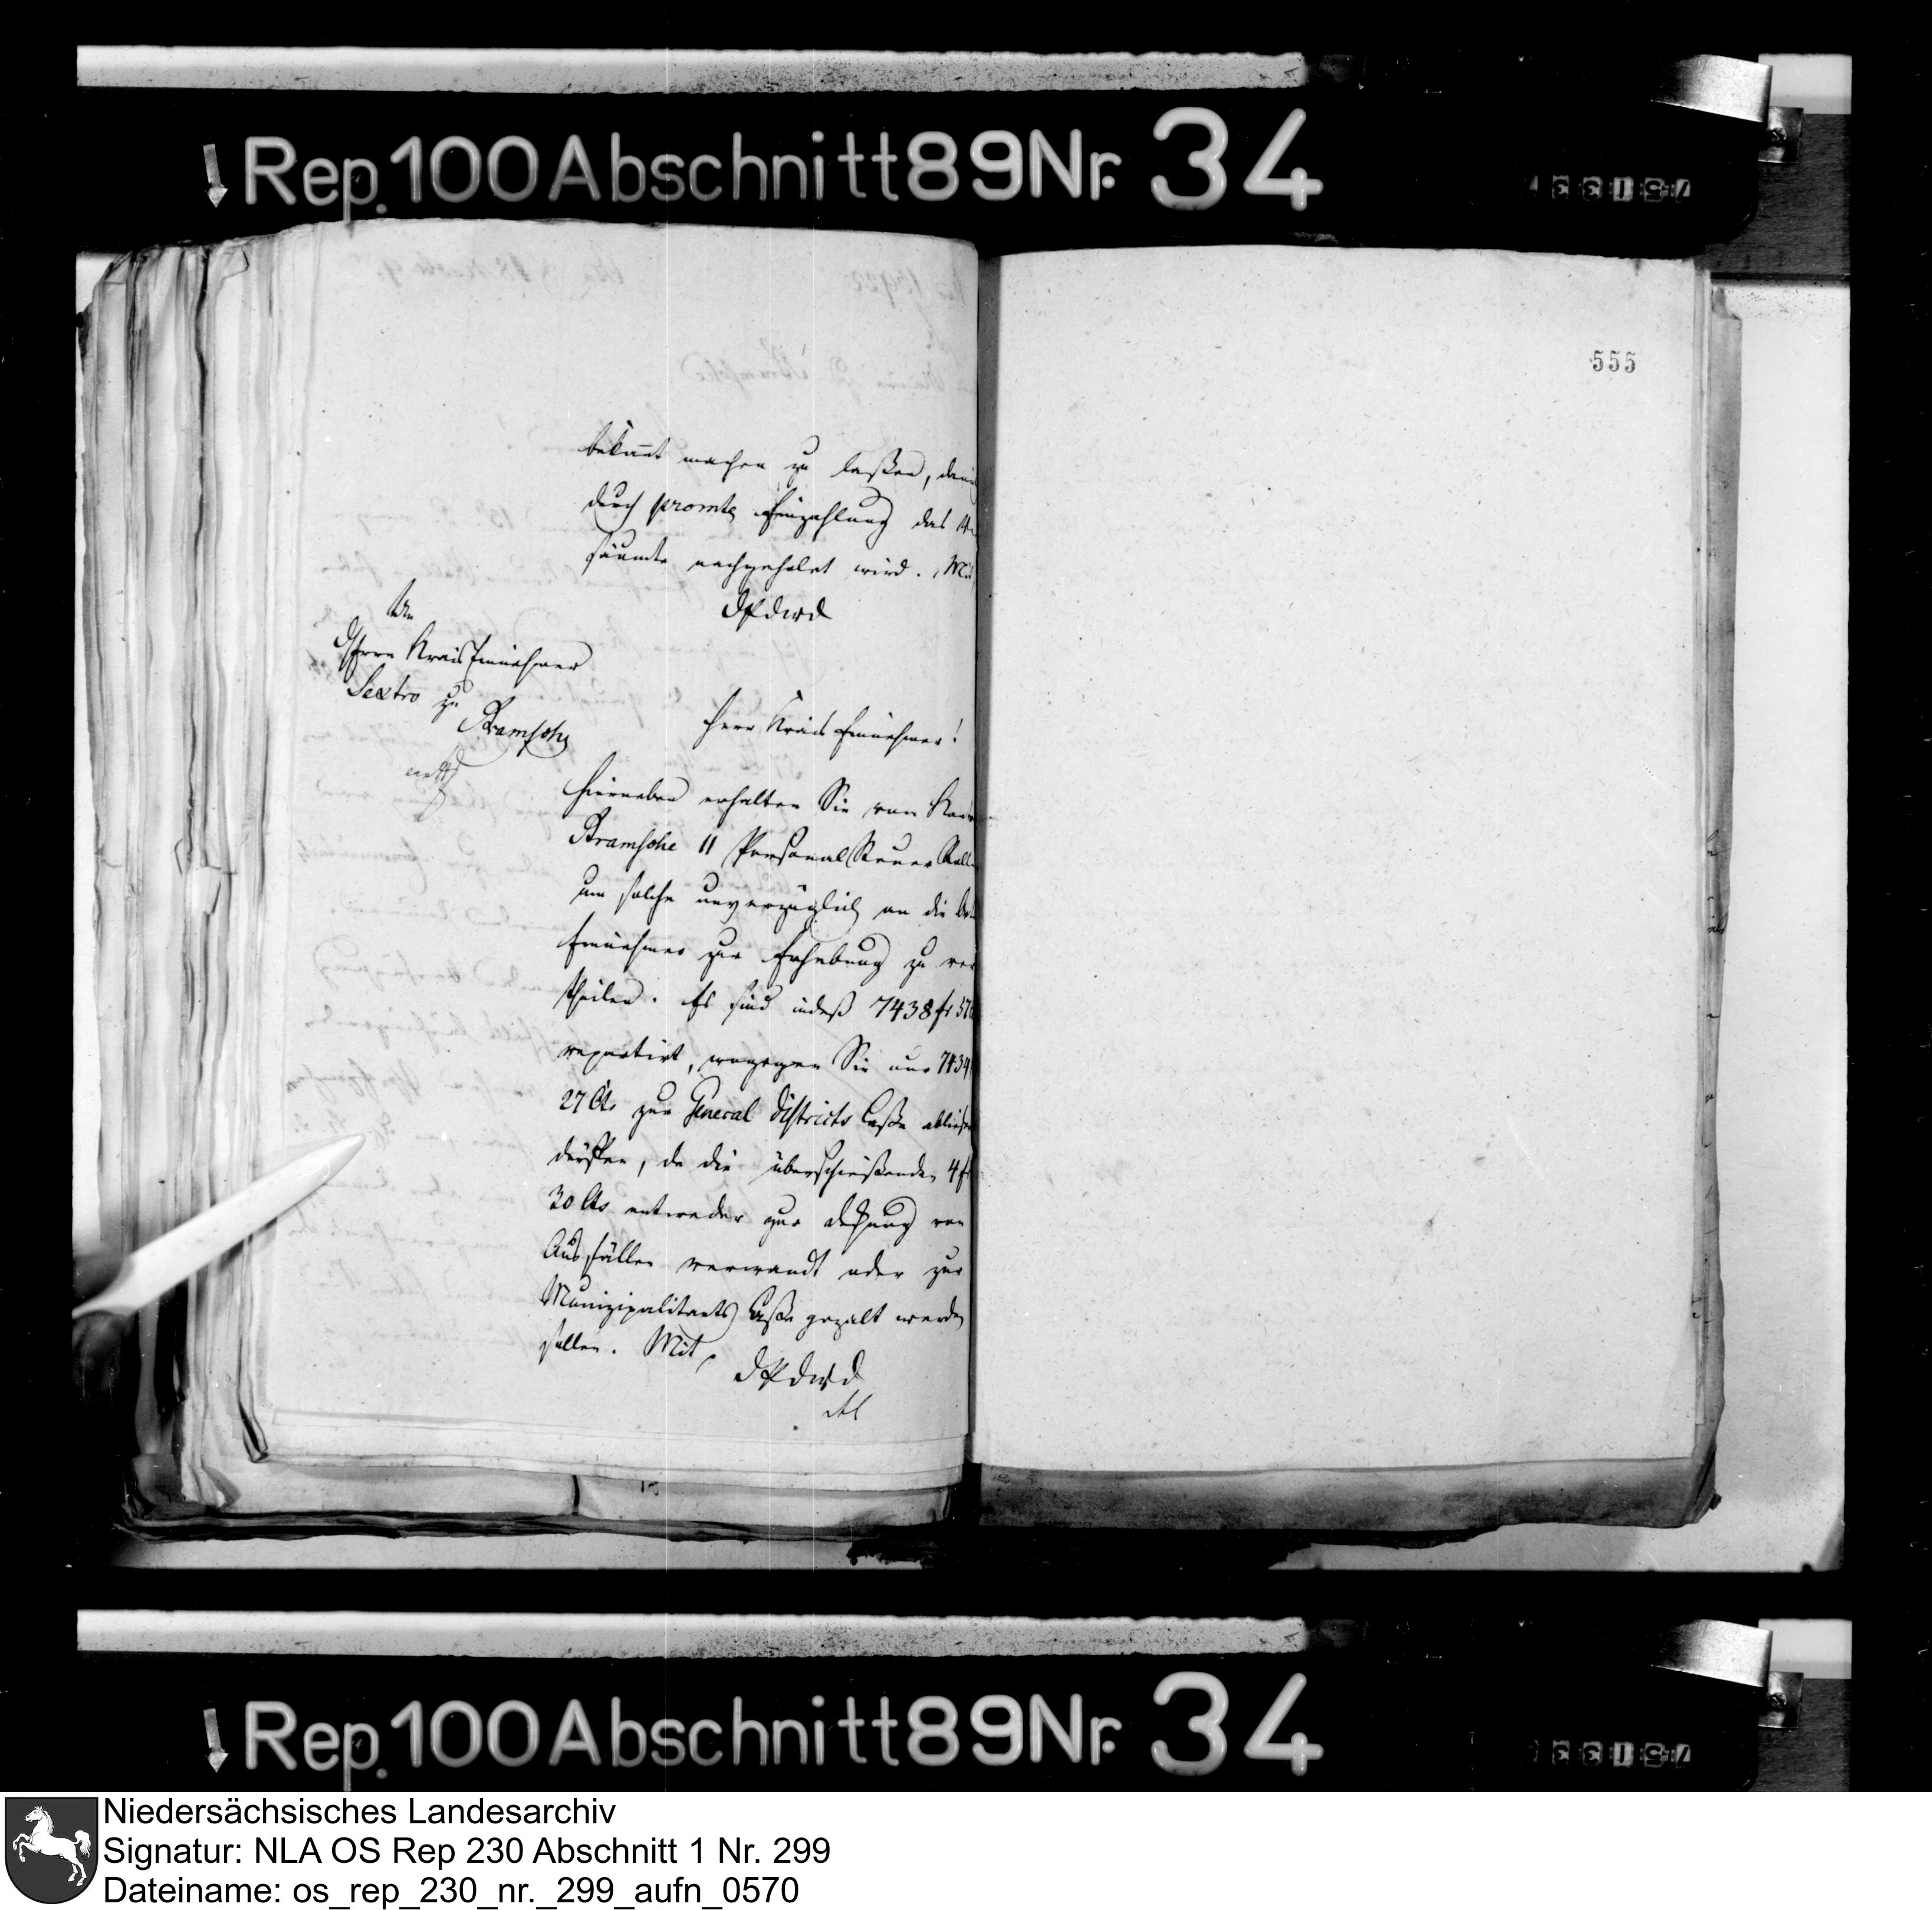 Rep. 100 Abschnitt 89 Nr. 34
75133
555
bekannt machen zu laßen, dam
durch promte Einzahlung das Ve
säumte nachgeholet wird. Mit
An
den Herrn Kreis Einnehmer
Sextro zu
Bramsche
Herr Kreis Einnehmer!
Hierneben erhalten Sie vom
Bramsche 11 Personal Steuer Rolle
um solche unverzüglich an die
Einnehmer zur Erhebung zu ver
theilen. Es sind indeß 7438 fr 57
repartirt, wogegen Sie nur 7434
27 Cts zur General Districts Casse abliefe
dürfen, da die überschießenden 4 fr
30 Cts entweder zur Deckung von
Ausfällen verwandt oder zur
Munizipalitaets Casse gezalt werden
sollen. Mit
Rep. 100 Abschnitt 89 Nr. 34
75133
Niedersächsisches Landesarchiv
Signatur: NLA OS Rep 230 Abschnitt 1 Nr. 299
Dateiname: os_rep_230_nr._299_aufn_0570